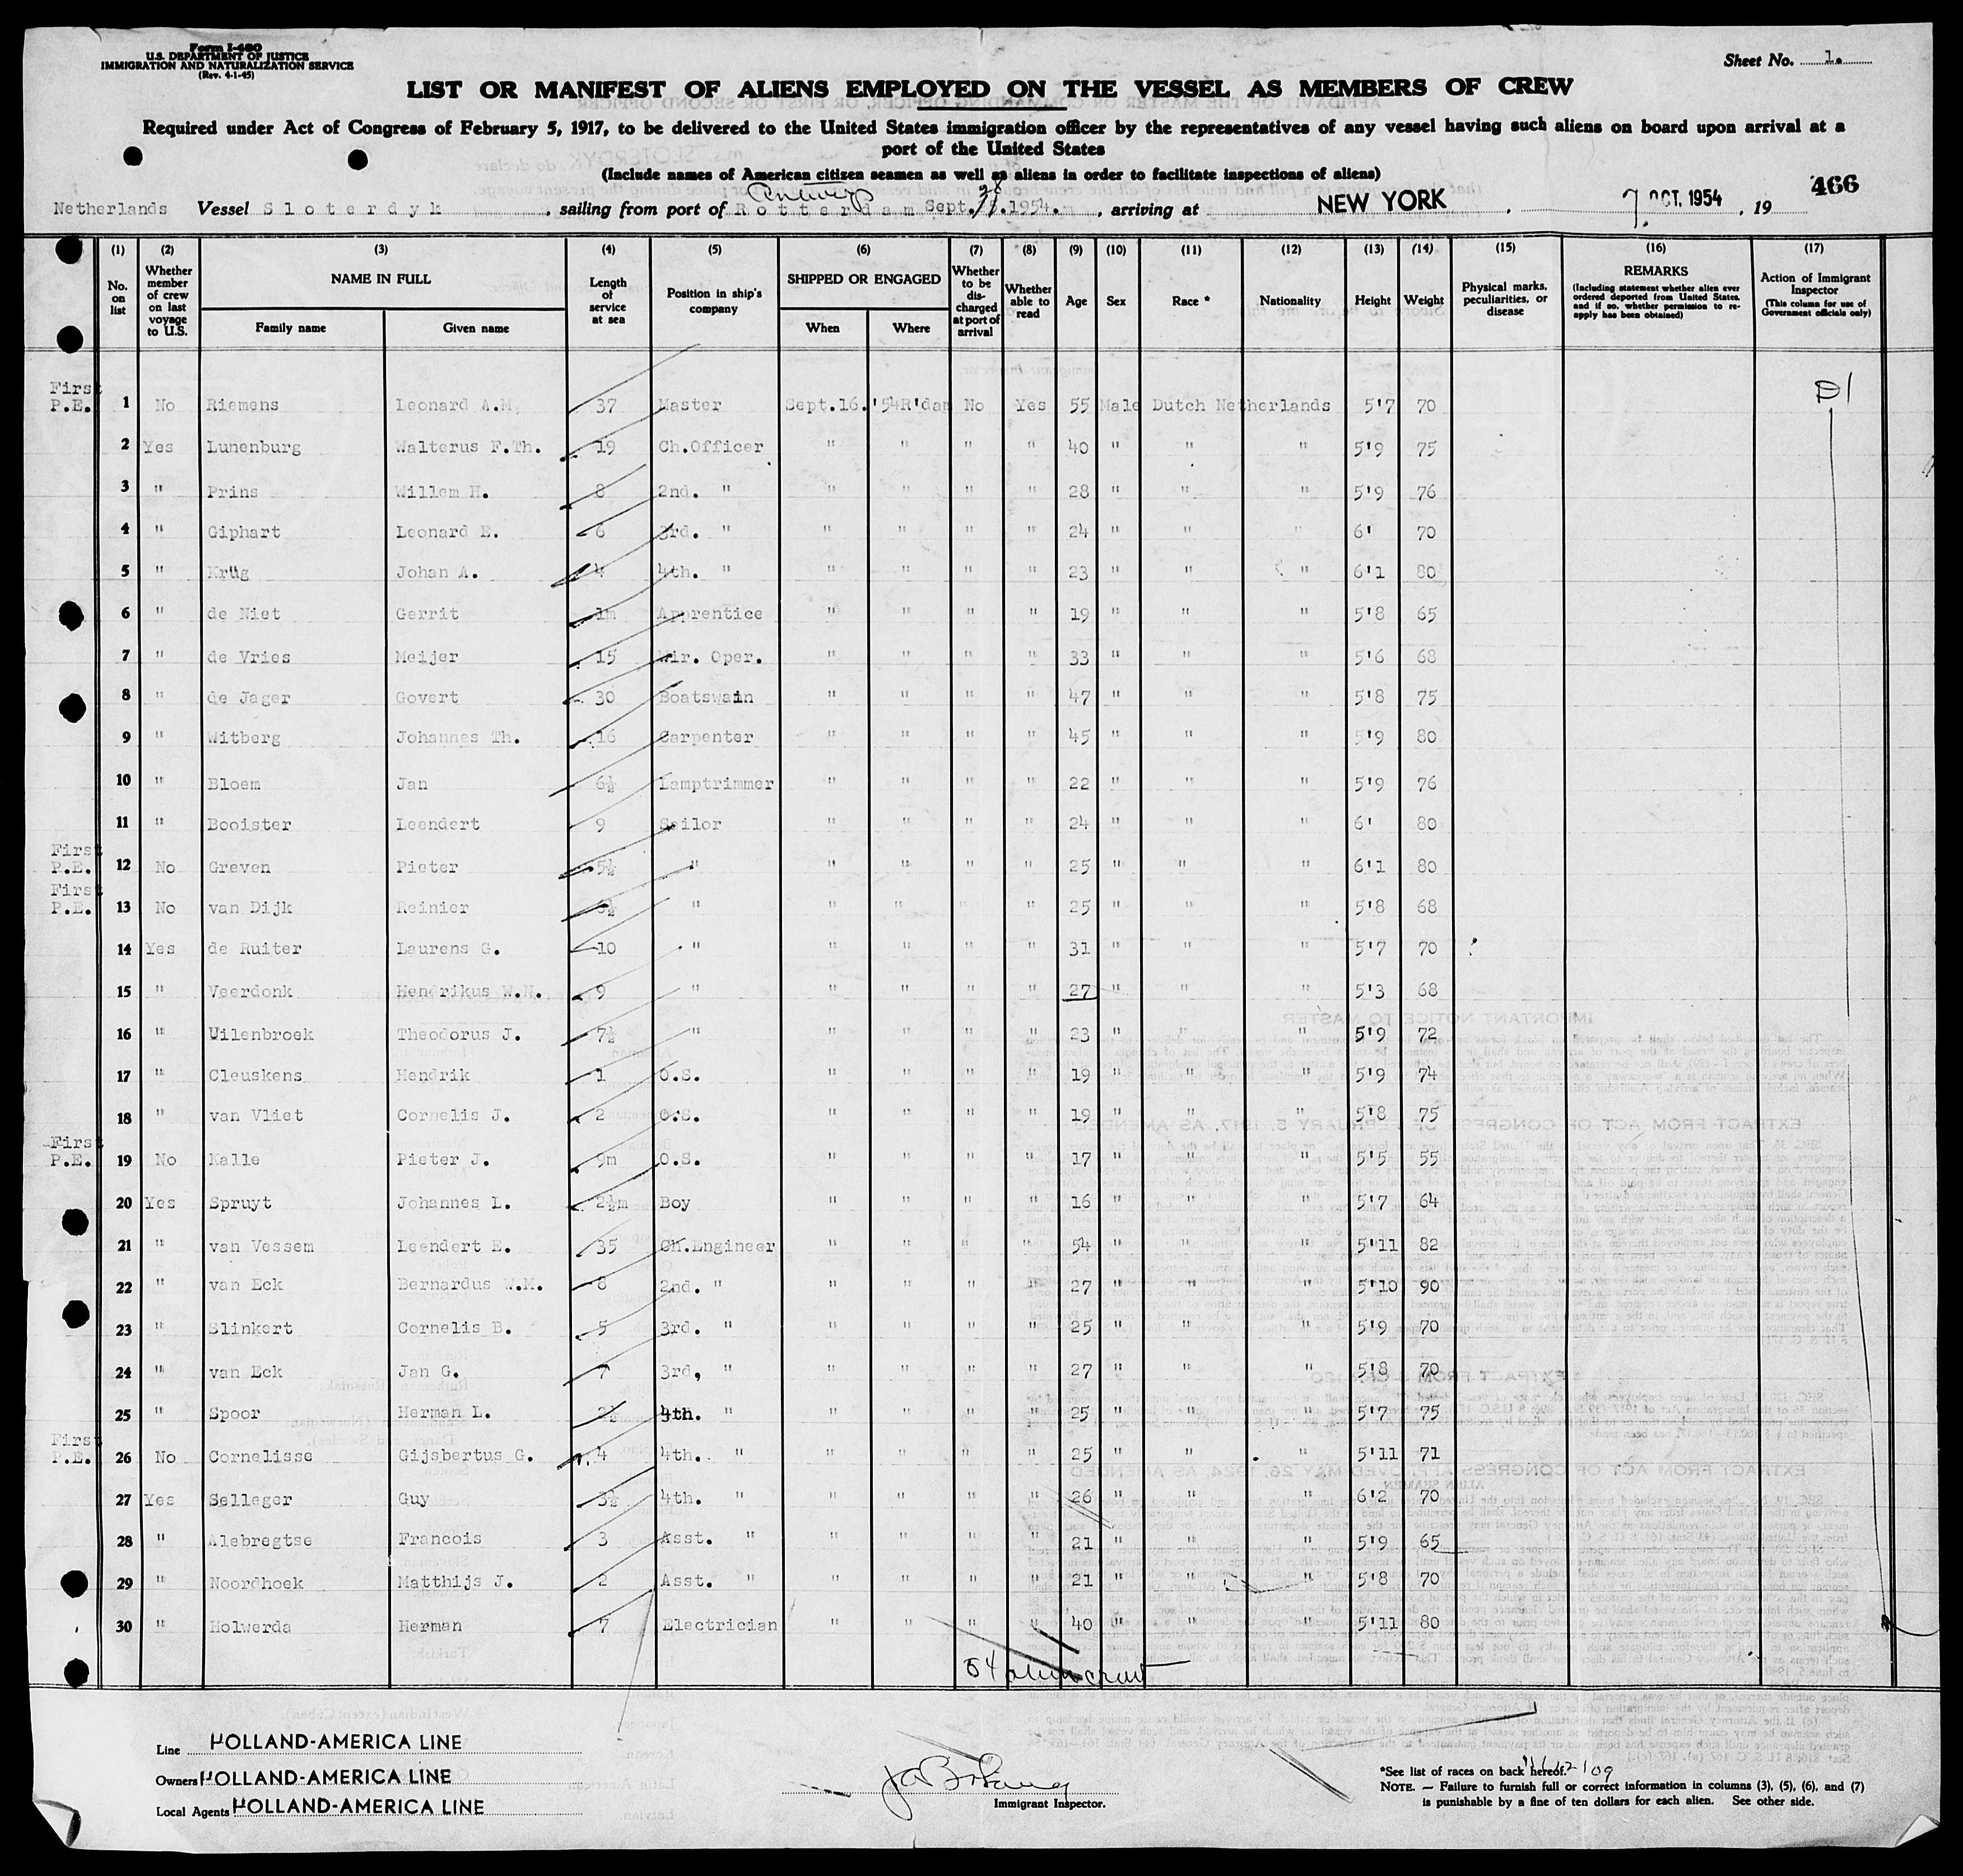 Form I-480
U.S. DEPARTMENT OF JUSTICE
IMMIGRATION AND NATURALIZATION SERVICE
(Rev. 4-1-45)
Sheet No. 1.
LIST OR MANIFEST OF ALIENS EMPLOYED ON THE VESSEL AS MEMBERS OF CREW
Required under Act of Congress of February 5, 1917, to be delivered to the United States immigration officer by the representatives of any vessel having such aliens on board upon arrival at a
port of the United States
(Include names of American citizen seamen as well as aliens in order to facilitate inspections of aliens)
466
Antwerp 28
Netherlands Vessel Sloterdyk, sailing from port of Rotterdam Sept. 1954., arriving at NEW YORK, 7. OCT. 1954, 19
(1) (2) (3) (4) (5) (6) (7) (8) (9) (10) (11) (12) (13) (14) (15) (16) (17)
No. on list Whether member of crew on last voyage to U.S. NAME IN FULL Family name Given name Length of service at sea Position in ship's company SHIPPED OR ENGAGED When Where Whether to be discharged at port of arrival Whether able to read Age Sex Race * Nationality Height Weight Physical marks, peculiarities, or disease REMARKS (Including statement whether alien ever ordered deported from United States, and if so, whether permission to reapply has been obtained) Action of Immigrant Inspector (This column for use of Government officials only)
First P.E. 1 No Riemens Leonard A.M. 37 Master Sept.16.'54 R'dam No Yes 55 Male Dutch Netherlands 5'7 70
2 Yes Lunenburg Walterus F.Th. 19 Ch.Officer " " " " 40 " " " 5'9 75
3 " Prins Willem H. 8 2nd. " " " " " 28 " " " 5'9 76
4 " Giphart Leonard E. 6 3rd. " " " " " 24 " " " 6' 70
5 " Krüg Johan A. 4 4th. " " " " " 23 " " " 6'1 80
6 " de Niet Gerrit 1m Apprentice " " " " 19 " " " 5'8 65
7 " de Vries Meijer 15 Wir. Oper. " " " " 33 " " " 5'6 68
8 " de Jager Govert 30 Boatswain " " " " 47 " " " 5'8 75
9 " Witberg Johannes Th. 16 Carpenter " " " " 45 " " " 5'9 80
10 " Bloem Jan 6½ Lamptrimmer " " " " 22 " " " 5'9 76
11 " Booister Leendert 9 Sailor " " " " 24 " " " 6' 80
First P.E. 12 No Greven Pieter 5½ " " " " " 25 " " " 6'1 80
First P.E. 13 No van Dijk Reinier " " " " " 25 " " " 5'8 68
14 Yes de Ruiter Laurens G. 10 " " " " " 31 " " " 5'7 70
15 " Veerdonk Hendrikus W.N. 9 " " " " " 27 " " " 5'3 68
16 " Uilenbroek Theodorus J. 7½ " " " " " 23 " " " 5'9 72
17 " Cleuskens Hendrik 1 O.S. " " " " 19 " " " 5'9 74
18 " van Vliet Cornelis J. 2 O.S. " " " " 19 " " " 5'8 75
First P.E. 19 No Kalle Pieter J. 9m O.S. " " " " 17 " " " 5'5 55
20 Yes Spruyt Johannes L. 2½m Boy " " " " 16 " " " 5'7 64
21 " van Vessem Leendert E. 35 Ch.Engineer " " " " 54 " " " 5'11 82
22 " van Eck Bernardus W.M. 8 2nd. " " " " " 27 " " " 5'10 90
23 " Slinkert Cornelis B. 5 3rd. " " " " " 25 " " " 5'9 70
24 " van Eck Jan G. 7 3rd, " " " " " 27 " " " 5'8 70
25 " Spoor Herman L. 4th. " " " " " 25 " " " 5'7 75
First P.E. 26 No Cornelisse Gijsbertus G. 4 4th. " " " " " 25 " " " 5'11 71
27 Yes Selleger Guy 3½ 4th. " " " " " 26 " " " 6'2 70
28 " Alebregtse Francois 3 Asst. " " " " " 21 " " " 5'9 65
29 " Noordhoek Matthijs J. 2 Asst. " " " " " 21 " " " 5'8 70
30 " Holwerda Herman 7 Electrician " " " " 40 " " " 5'11 80
54 alien crew
Line HOLLAND-AMERICA LINE
Owners HOLLAND-AMERICA LINE
Local Agents HOLLAND-AMERICA LINE
Immigrant Inspector.
*See list of races on back hereof.
NOTE. — Failure to furnish full or correct information in columns (3), (5), (6), and (7)
is punishable by a fine of ten dollars for each alien. See other side.